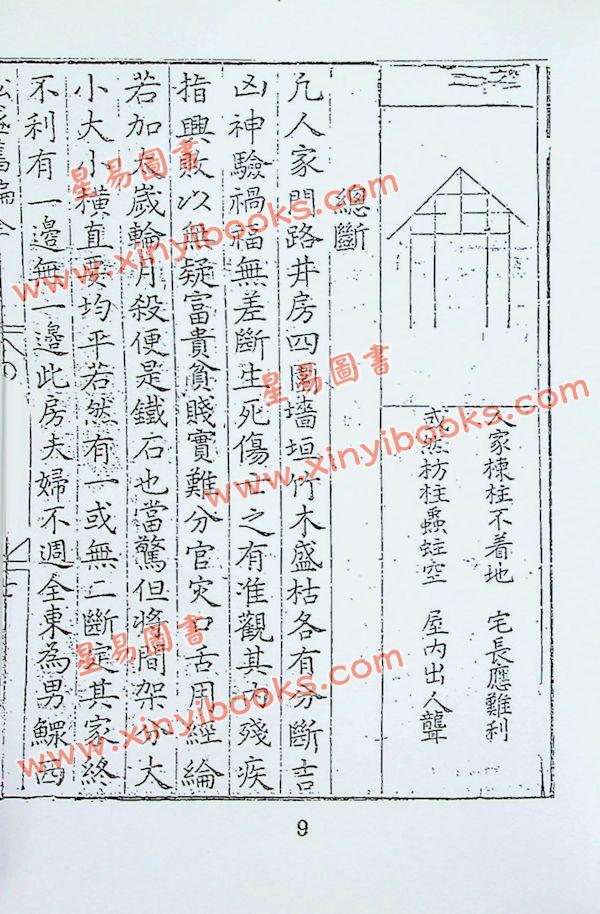 人家棟柱不着地　宅長應難利
或然枋柱蟲蛀空　屋內出人聾
總斷
凢人家門路井房四圍墻垣竹木盛枯各有分斷吉
凶神驗禍福無差斷生死傷亡之有准觀其內殘疾
指興敗以無疑富貴貧賤實難分官灾口舌用經綸
若加太歲輪月殺便是鐵石也當驚但將間架分大
小大小橫直要均平若然有一或無二斷定其家終
不利有一邉無一邉此房夫婦不週全東為男鰥西
9
星易圖書
www.xinyibooks.com
星易圖書
www.xinyibooks.com
星易圖書
www.xinyibooks.com